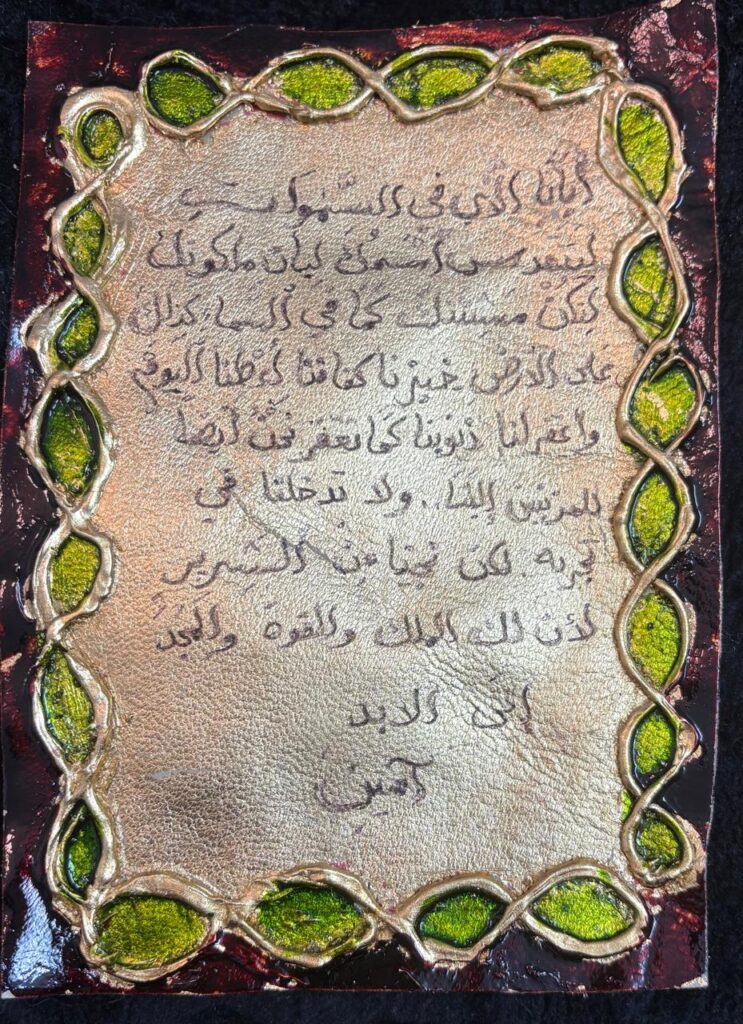 أبانا الذي في السَّمَوَات
ليتقدس اسمك ليأت ملكوتك
لتكن مشيئتك كما في السما كذلك
على الأرض خبزنا كفافنا أعطنا اليوم
واغفر لنا ذنوبنا كما نغفر نحن أيضا
للمذنبين إلينا.. ولا تدخلنا في
تجربه. لكن نجنا من الشرير
لأن لك الملك والقوة والمجد
إلى الابد
آمين